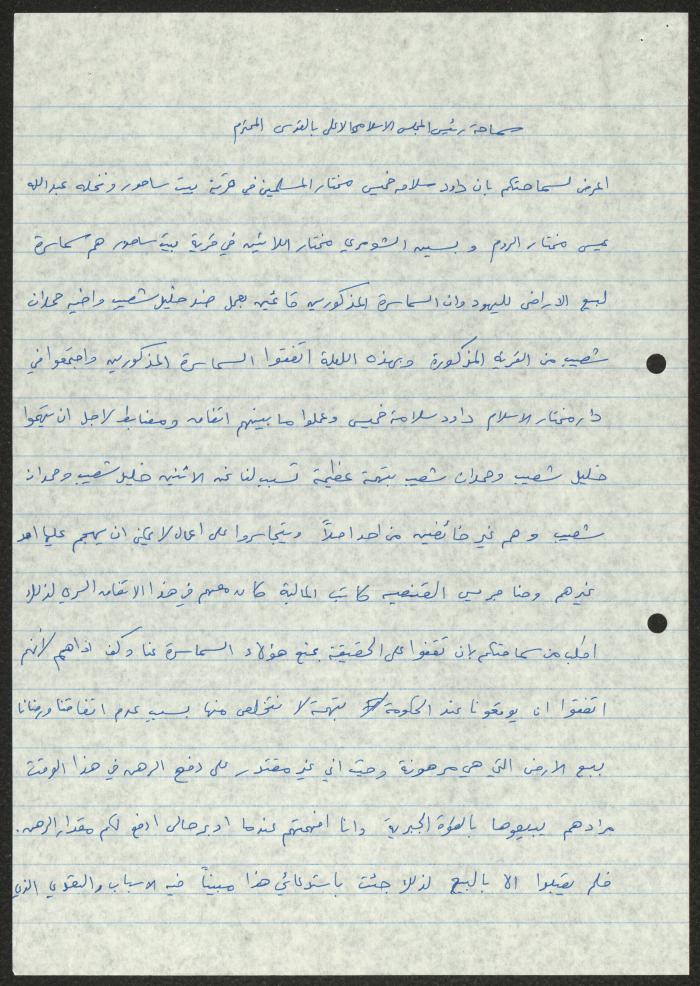 سماحة رئيس المجلس الاسلامي الاعلى بالقدس المحترم
اعرض لسماحتكم بان داود سلامه خميس مختار المسلمين في قرية بيت ساحور ونخله عبدالله
عيسى مختار الروم و الشوملي مختار اللاتين في قرية بيت ساحور هم سماسرة
لبيع الاراضي لليهود وان السماسرة المذكورين قائمين بعمل ضد خليل شعيب واخيه حمدان
شعيب من القريه المذكورة وبهذه الليلة اتفقوا السماسرة المذكورين واجتمعوا في
دار مختار الاسلام داود سلامة خميس وعملوا ما بينهم اتفاق ومضابط لاجل ان يتهموا
خليل شعيب وحمدان شعيب بتهمة عظيمة تسبب لنا نحن الاثنين خليل شعيب وحمدان
شعيب وهم غير خائفين من احد اصلاً ويتجاسروا على اعمال لا يمكن ان يهجم عليها احد
غيرهم وحنا جريس كاتب المالية كان معهم في هذا الاتفاق السري لذلك
اطلب من سماحتكم بان تقفوا على الحقيقة بمنع هؤلاء السماسرة عنا وكف اذاهم لأنهم
اتفقوا ان يوقعونا عند الحكومة بتهمة لا نتخلص منها بسبب عدم اتفاقنا ورضانا
ببيع الارض التي هي مرهونة وحيث اني غير مقتدر على دفع الرهن في هذا الوقت
مرادهم يبيعوها بالقوة الجبرية وانا افهمتهم عندما ادبر حالي ادفع لكم مقدار الرهن.
فلم يقبلوا الا بالبيع لذلك جئت باستدعائي هذا مبيناً فيه الاسباب والتقوي الذي